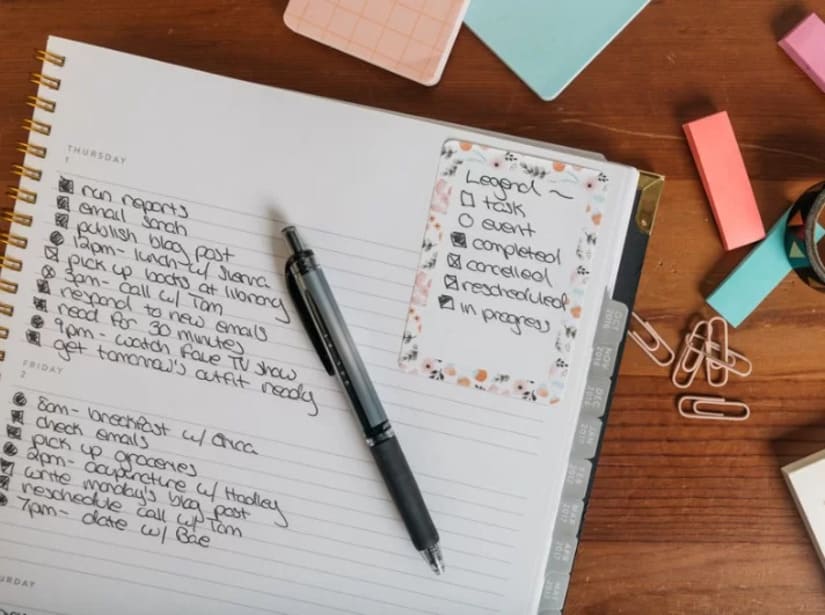 THURSDAY
1
run reports
email sarah
publish blog post
12pm- lunch w/ Sienna
pick up books at library
3pm- call w/ Tom
respond to new emails
read for 30 minutes
9pm- watch fave TV show
get tomorrow's outfit ready
FRIDAY
2
8am- breakfast w/ Erica
check emails
pick up groceries
2pm- acupuncture w/ Hadley
write monday's blog post
reschedule call w/ Tom
7pm- date w/ Bae
URDAY
Legend~
task
event
completed
cancelled
rescheduled
in progress
OCT
2016
NOV
2016
DEC
2016
JAN
2017
FEB
2017
MAR
2017
APR
2017
MAY